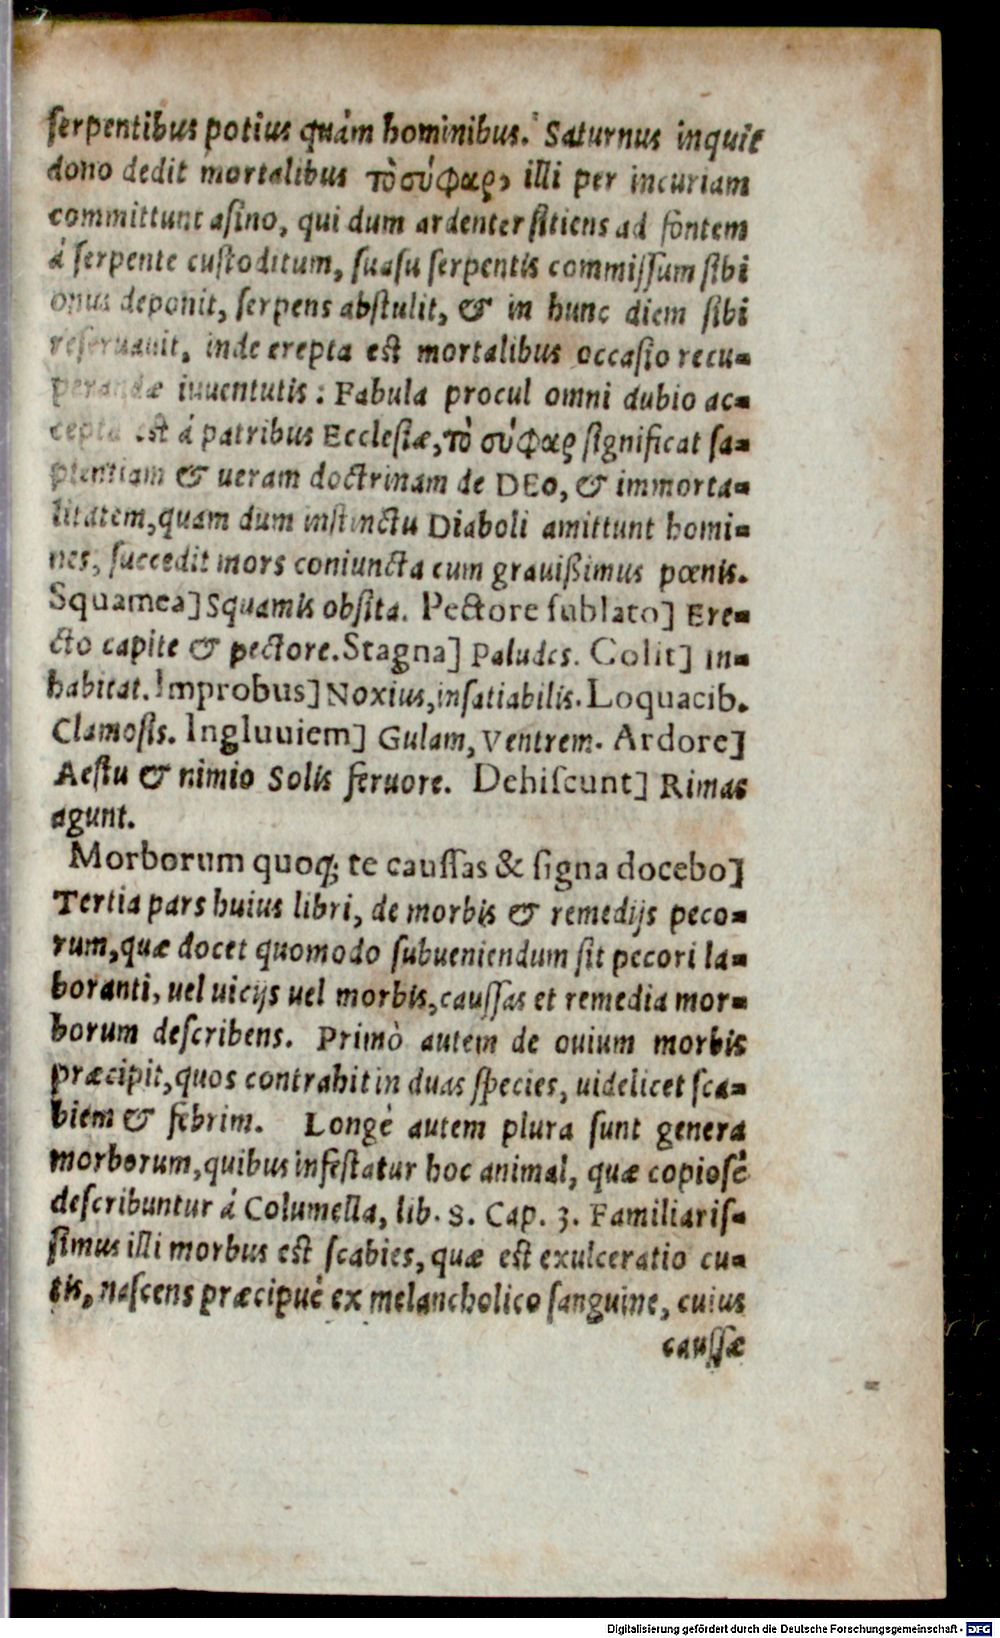 serpentibus potius quàm hominibus. Saturnus inquit
dono dedit mortalibus τὸ σύφαρ, illi per incuriam
committunt asino, qui dum ardenter sitiens ad fontem
á serpente custoditum, suasu serpentis commissum sibi
onus deponit, serpens abstulit, & in hunc diem sibi
reseruauit, inde erepta est mortalibus occasio recu-
perandæ iuuentutis: Fabula procul omni dubio ac-
cepta est á patribus Ecclesiæ, τὸ σύφαρ significat sa-
pientiam & ueram doctrinam de DEO, & immorta-
litatem, quam dum instinctu Diaboli amittunt homi-
nes, succedit mors coniuncta cum grauißimus pœnis.
Squamea] Squamis obsita. Pectore sublato] Ere-
cto capite & pectore. Stagna] Paludes. Colit] In-
habitat. Improbus] Noxius, insatiabilis. Loquacib.
Clamosis. Ingluuiem] Gulam, Ventrem. Ardore]
Aestu & nimio Solis feruore. Dehiscunt] Rimas
agunt.
Morborum quoq; te caussas & signa docebo]
Tertia pars huius libri, de morbis & remedijs peco-
rum, quæ docet quomodo subueniendum sit pecori la-
boranti, uel uicijs uel morbis, caussas et remedia mor-
borum describens. Primò autem de ouium morbis
præcipit, quos contrahit in duas species, uidelicet sca-
biem & febrim. Longè autem plura sunt genera
morborum, quibus infestatur hoc animal, quæ copiosè
describuntur á Columella, lib. 8. Cap. 3. Familiaris-
simus illi morbus est scabies, quæ est exulceratio cu-
tis, nascens præcipuè ex melancholico sanguine, cuius
caussæ
Digitalisierung gefördert durch die Deutsche Forschungsgemeinschaft - DFG